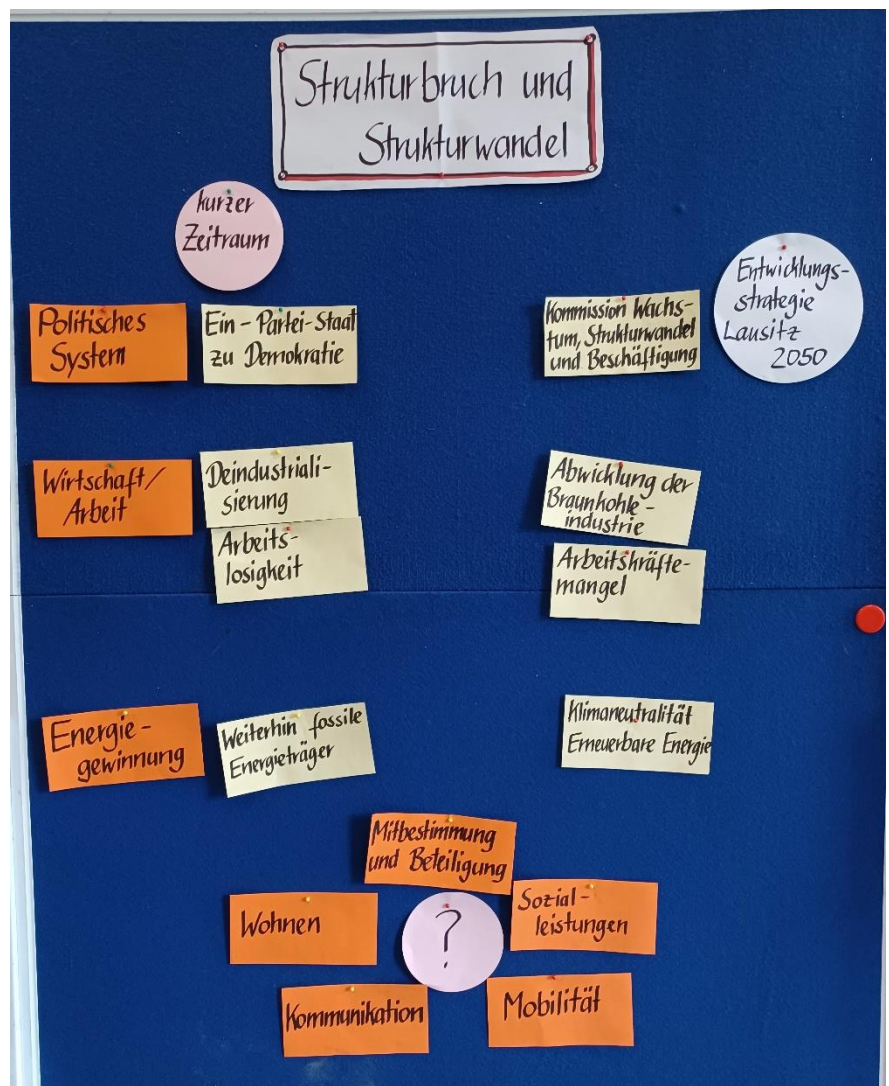 Strukturbruch und
Strukturwandel
kurzer
Zeitraum
Entwicklungs-
strategie
Lausitz
2050
Politisches
System
Ein-Partei-Staat
zu Demokratie
Kommission Wachs-
tum, Strukturwandel
und Beschäftigung
Wirtschaft/
Arbeit
Deindustriali-
sierung
Arbeits-
losigkeit
Abwicklung der
Braunkohle-
industrie
Arbeitskräfte-
mangel
Energie-
gewinnung
Weiterhin fossile
Energieträger
Klimaneutralität
Erneuerbare Energie
Mitbestimmung
und Beteiligung
Wohnen
?
Sozial-
leistungen
Kommunikation
Mobilität